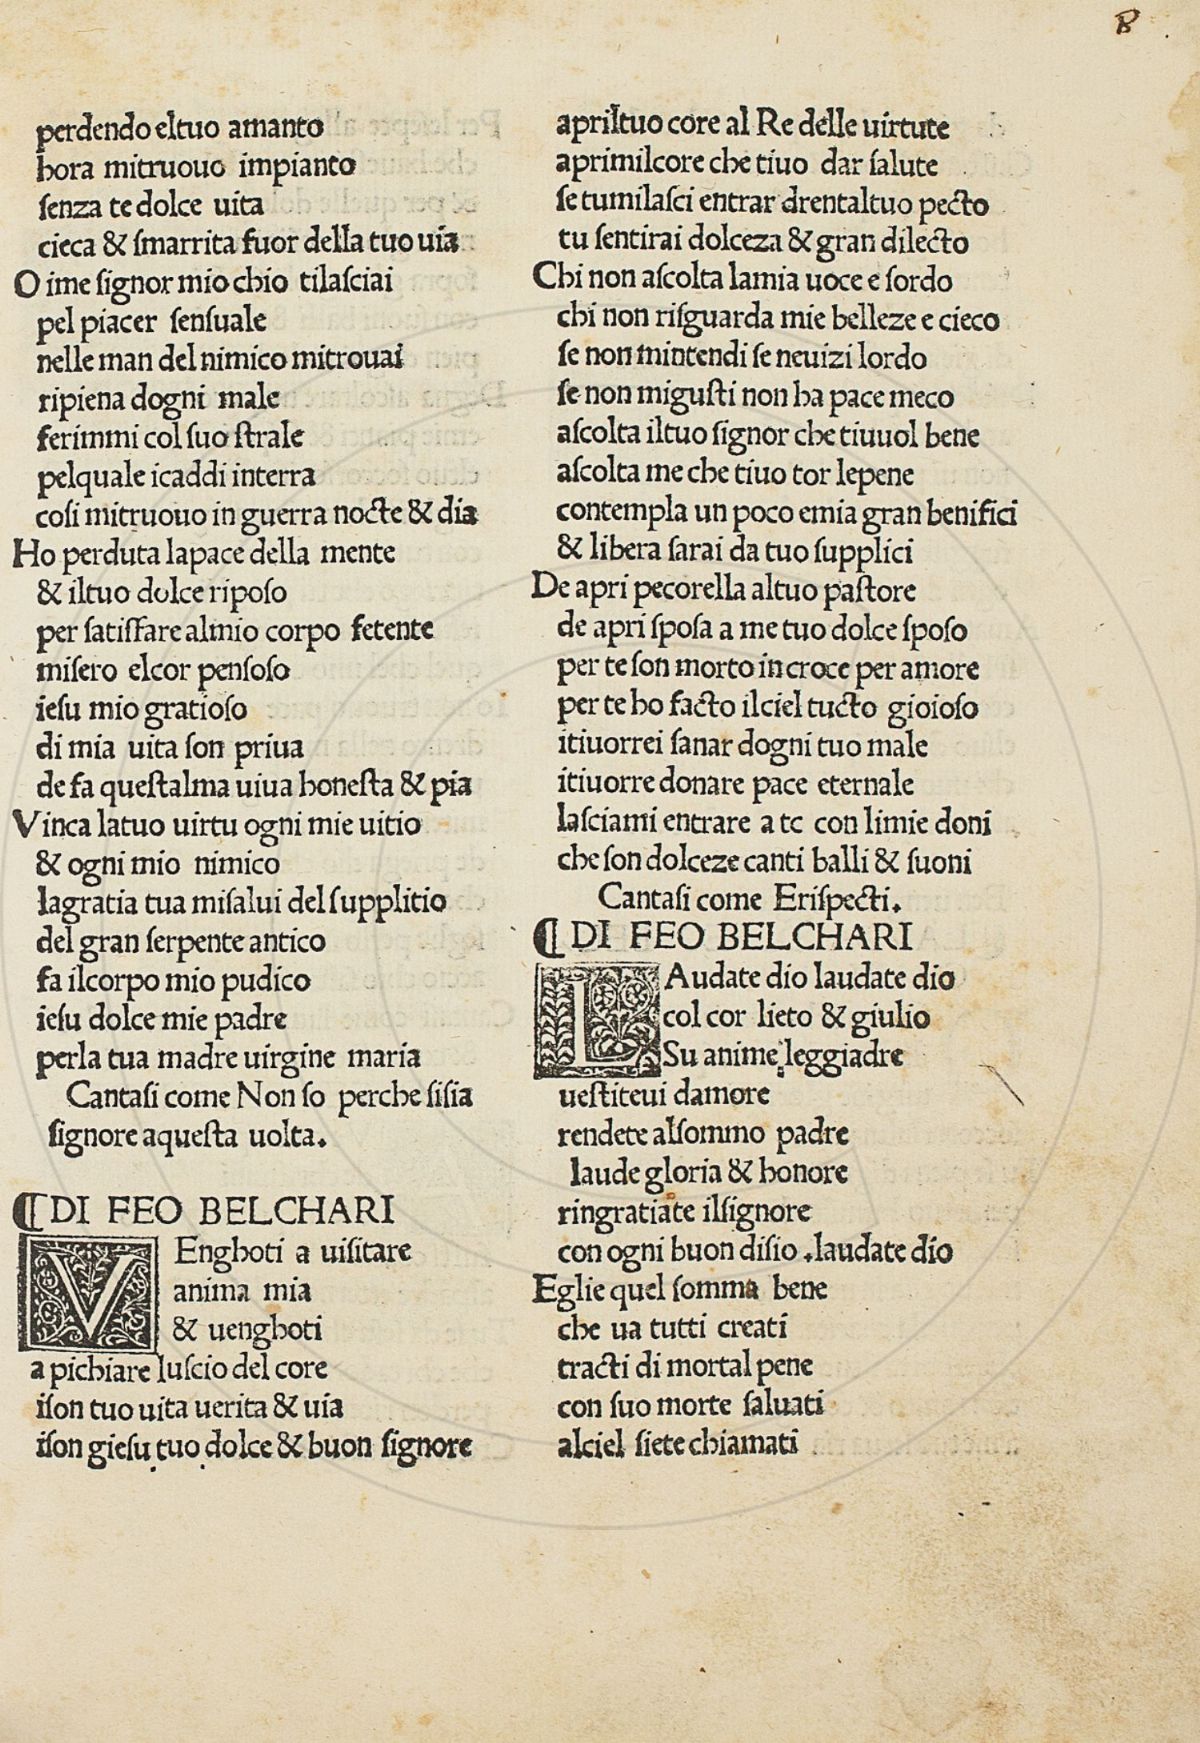 B
perdendo eltuo amanto
hora mitruouo impianto
ſenza te dolce uita
cieca & ſmarrita fuor della tuo uia
O ime ſignor mio chio tilaſciai
pel piacer ſenſuale
nelle man del nimico mitrouai
ripiena dogni male
ferimmi col ſuo ſtrale
pelquale icaddi interra
coſi mitruouo in guerra nocte & dia
Ho perduta lapace della mente
& iltuo dolce ripoſo
per ſatiſfare almio corpo fetente
miſero elcor penſoſo
ieſu mio gratioſo
di mia uita ſon priua
de fa queſtalma uiua honeſta & pia
Vinca latuo uirtu ogni mie uitio
& ogni mio nimico
lagratia tua miſalui del ſupplitio
del gran ſerpente antico
fa ilcorpo mio pudico
ieſu dolce mie padre
perla tua madre uirgine maria
Cantaſi come Non ſo perche ſiſia
ſignore aqueſta uolta.
¶ DI FEO BELCHARI
VEnghoti a uiſitare
anima mia
& uenghoti
a pichiare luſcio del core
iſon tuo uita uerita & uia
iſon gieſu tuo dolce & buon ſignore
apriltuo core al Re delle uirtute
aprimilcore che tiuo dar ſalute
ſe tumilaſci entrar drentaltuo pecto
tu ſentirai dolceza & gran dilecto
Chi non aſcolta lamia uoce e ſordo
chi non riſguarda mie belleze e cieco
ſe non mintendi ſe neuizi lordo
ſe non miguſti non ha pace meco
aſcolta iltuo ſignor che tiuuol bene
aſcolta me che tiuo tor lepene
contempla un poco emia gran benifici
& libera ſarai da tuo ſupplici
De apri pecorella altuo paſtore
de apri ſpoſa a me tuo dolce ſpoſo
per te ſon morto in croce per amore
per te ho facto ilciel tucto gioioſo
itiuorrei ſanar dogni tuo male
itiuorre donare pace eternale
laſciami entrare a te con limie doni
che ſon dolceze canti balli & ſuoni
Cantaſi come Eriſpecti.
¶ DI FEO BELCHARI
LAudate dio laudate dio
col cor lieto & giulio
Su anime leggiadre
ueſtiteui damore
rendete alſommo padre
laude gloria & honore
ringratiate ilſignore
con ogni buon diſio .laudate dio
Eglie quel ſomma bene
che ua tutti creati
tracti di mortal pene
con ſuo morte ſaluati
alciel ſiete chiamati